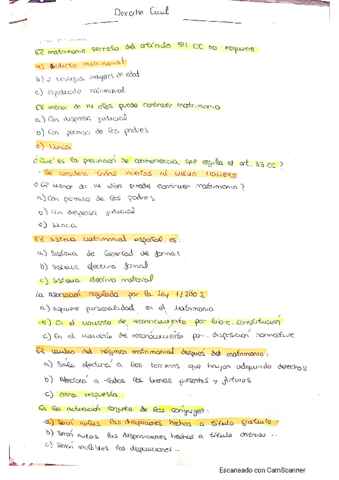 Derecho Civil
El matrimonio secreto del artículo 54 CC no requiere
a) Edicto matrimonial
b) 2 testigos mayores de edad
c) Expediente matrimonial
El menor de 14 años puede contraer matrimonio
a) Con dispensa judicial
b) Con permiso de los padres
c) Nunca
¿Qué es la presunción de conmoriencia que regula el art. 33 CC?
- Se considera todos muertos al mismo tiempo
¿El menor de 14 años puede contraer matrimonio?
a) Con permiso de los padres
b) Con dispensa judicial
c) Nunca
El sistema matrimonial español es:
a) Sistema de libertad de formas
b) Sistema electivo formal
c) Sistema electivo material
La asociación regulada por la Ley 1/2002
a) Adquiere personalidad en el
b) En el momento de reconocimiento por
c) En el momento de reconocimiento por disposición normativa
El cambio del régimen matrimonial después del matrimonio:
a) Sólo afectará a los terceros que hayan adquirido derechos
b) Afectará a todos los bienes presentes y futuros
c) otra respuesta
En la actuación conjunta de los cónyuges:
a) Serán nulas las disposiciones hechas a título gratuito
b) Serán nulas las disposiciones hechas a título oneroso
c) Serán las disposiciones
Escaneado con CamScanner